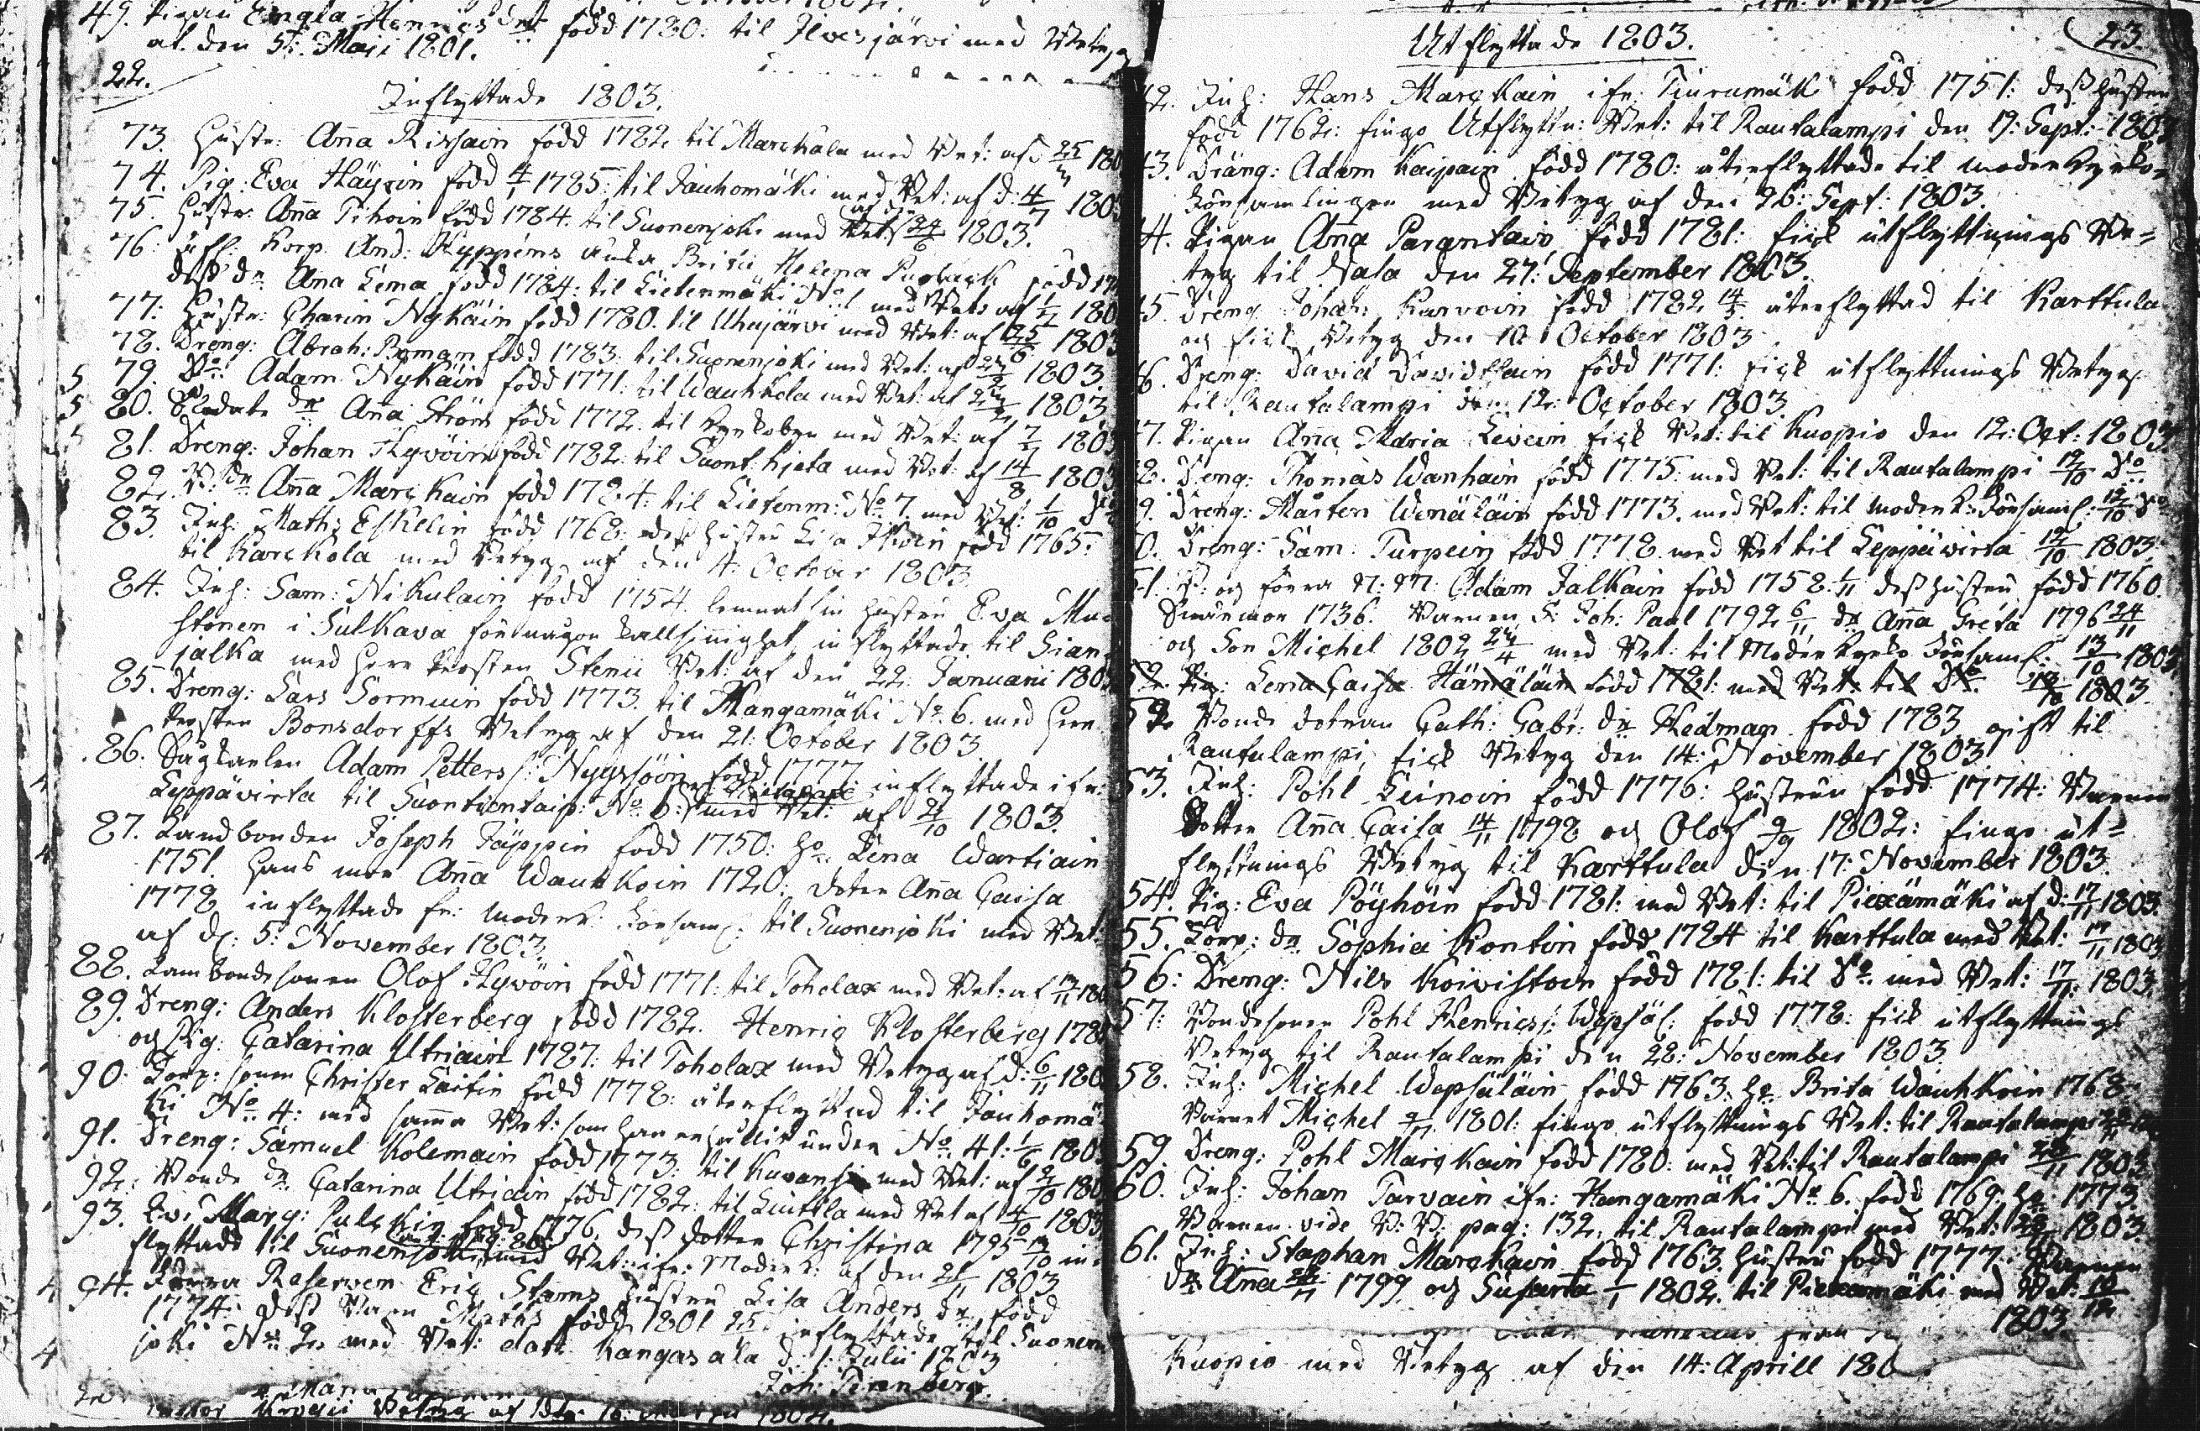 49. Pigan Engla Henricsdr född 1780: til Ilvesjärvi med Betyg
af den 5: Maii 1801.
22.
Inflyttade 1803.
73. Hustr: Aña Rissain född 1782 til Marckala med Bet: af 25 180
74. Pig: Eva Häyrin född 1785: til Jauhomäki med Bet: af d: 4/7 1803
75. Hustr: Aña Tihoin född 1784. til Suonenjoki med Bet: 24/6 1803.
76. Korp. And: Hyppéns enka Brita Helena född 17
dess dr Ana Lema född 1784: til Lietenmäki No 1 med Bet: af 180
77. Hustr: Charin Nykäin född 1780. til Uhujärvi med Bet: af 25/6 1803
78. Dreng: Abrah: Byman född 1783: til Suonenjoki med Bet: af 1803.
5 79. Do: Adam Nykäin född 1771: til Vauhkola med Bet: af 1803.
5 80. dr Aña Ström född 1772. til Kyrkobyn med Bet: af 1803
81. Dreng: Johan Hyvöin född 1782: til Suont: Kjeta med Bet: af 14/8 1803
82. dr Aña Marckain född 1784: til Lietenm: No 7. med Bet: 1/10
83. Inh: Maths Eskelin född 1768: dess hustru Lisa född 1765:
til Karckola med Betyg af den 4: October 1803
84. Inh: Sam: Nikulain född 1754. lemnat sin hustru Eva
stonen i Sulkava för någon kallsinnighet, inflyttade til
jalka med Herr Prosten Stenii Bet: af den 22: Januarii 1803
85. Dreng: Lars Sormuin född 1773. til Mangamäki No 6. med Herr
Prosten Bonsdorffs Betyg af den 21: October 1803
86. Adam Petters s: Nyyssöin född 1777: inflyttade ifr:
Leppävirta til No 6: med Bet: af 21/10 1803.
87. Landbonden Joseph Jäppin född 1750: ho Lena Wartiain
1751. Hans mor Aña Wauhkoin 1720: doter Aña Caisa
1778 inflyttade fr: moderk: Församl: til Suonenjoki med Bet:
af d: 5: November 1803.
88. Lambondesonen Olof Hyvöin född 1771: til Toholax med Bet: af 180
89. Dreng: Anders Klosterberg född 1782. Henric Klosterberg 178
och Pig: Catarina Utriain 1787: til Toholax med Betyg af d: 6/11 180
90. Torp: sonen Christer Laitin född 1778: återflyttad til Jauhomä
ki No 4: med sama Bet: som han erhållit under No 41: 1803
91. Dreng: Samuel Kolemain född 1773: til Kuvansi med Bet: af 2/10 180
92. Bonde dr Catarina Utriain född 1782: til Luittla med Bet af 4/10 1803
93. Marg: född 1776, dess dotter Christina 1795 in
flyttade til Suonenjoki med Bet: ifr: Moderk: af den 21/11 1803
4 94. Förra Reserven Eric Stams hustru Lisa Anders dr född
1774: dess Barn Maths född 1801 25 inflyttade til Suonen
joki No 2 med Bet: dat: Kangasala d: 1: Julii 1803
4 Joh: Tirenberg.
Utflyttade 1803.
23.
42. Inh: Hans Marckain ifr: Tiurumäki född 1751: dess hustru
född 1762: fingo Utflyttn: Bet: til Rautalampi den 19: Sept: 1803
43. Dräng: Adam Kaipain född 1780: återflyttade til moderkyrko=
församlingen med Betyg af den 26: Sept: 1803.
44. Pigan Aña Parantain född 1781: fick utflyttnings Be=
tyg til den 27: September 1803.
45. Dreng Johan Karvoin född 1782 14/5 återflyttad til Karttula
och fick Betyg den 10 October 1803
46. Dreng: David Davidsain född 1771: fick utflyttnings Betyg
til Rautalampi den 12: October 1803.
47. Pigan Aña Maria Leivein fick Bet: til Kuopio den 12: Oct: 1803
48. Dreng: Thomas Wanhain född 1775: med Bet: til Rautalampi 12/10 Do
49. Dreng: Mårten Wenäläin född 1773. med Bet: til moderk: Församl: 12/10 Do
50. Dreng: Sam: Turpein född 1778. med Bet til Leppävirta 12/10 1803.
51. och förra N: M: Adam Jalkain född 1758. dess hustru född 1760.
Svärmor 1736. Barnen S: Joh: Paul 1792 6/11 dr Aña Greta 1796 24/11
och Son Michel 1802 24/4 med Bet: til Moderkyrko Församl: 13/10 1803
52. Pig: Lena Caisa Hämäläin född 1781: med Bet: til Do. 18/10 1803.
52 Bonde dotran Cath: Gabr: dr Hedman född 1783 gift til
Rautalampi, fick Betyg den 14: November 1803.
53. Inh: Pohl Leinoin född 1776: hustrun född 1774: Barnen
Dotter Aña Caisa 14/11 1798 och Olof 9/9 1802: fingo ut=
flyttnings Betyg til Karttula den 17: November 1803.
54. Pig: Eva Pöyhöin född 1781: med Bet: til Piexämäki af d: 17/11 1803.
55. Torp: dr Sophia Kontin född 1784 til Karttula med Bet: 17/11 1803
56: Dreng: Nils Koivistoin född 1781: til Do. med Bet: 17/11 1803.
57: Bondesonen Pohl Henrics s: Wepsäl: född 1778: fick utflyttnings
Betyg til Rautalampi den 28: November 1803.
58. Inh: Michel Wepsäläin född 1763. ho Brita Wauhkoin 1768
Barnet Michel 1801: fingo utflyttnings Bet: til Rautalampi
59. Dreng: Pohl Marckain född 1780: med Bet: til Rautalampi 28/11 1803
60. Inh: Johan Tarvain ifr: Hangamäki No 6. född 1769. ho: 1773.
Barnen vide B: B: pag: 132. til Rautalampi med Bet: 28/11 1803
61. Inh: Staphan Marckain född 1763. hustru född 1777: Barnen
dr Aña 1799 och Susanna 1802. til Piexämäki med Bet: 10/12
1803.
Kuopio med Betyg af den 14: Aprill 180